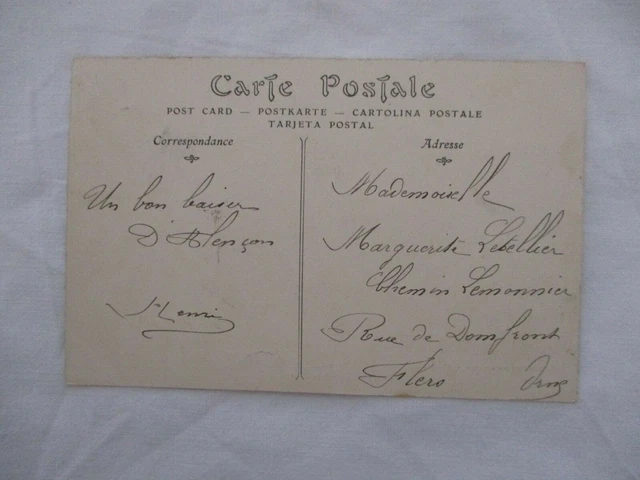 Carte Postale
POST CARD — POSTKARTE — CARTOLINA POSTALE
TARJETA POSTAL
Correspondance
Un bon baiser
D'Alençon
Henri
Adresse
Mademoiselle
Marguerite Letellier
Chemin Lemonnier
Rue de Domfront
Flers Orne